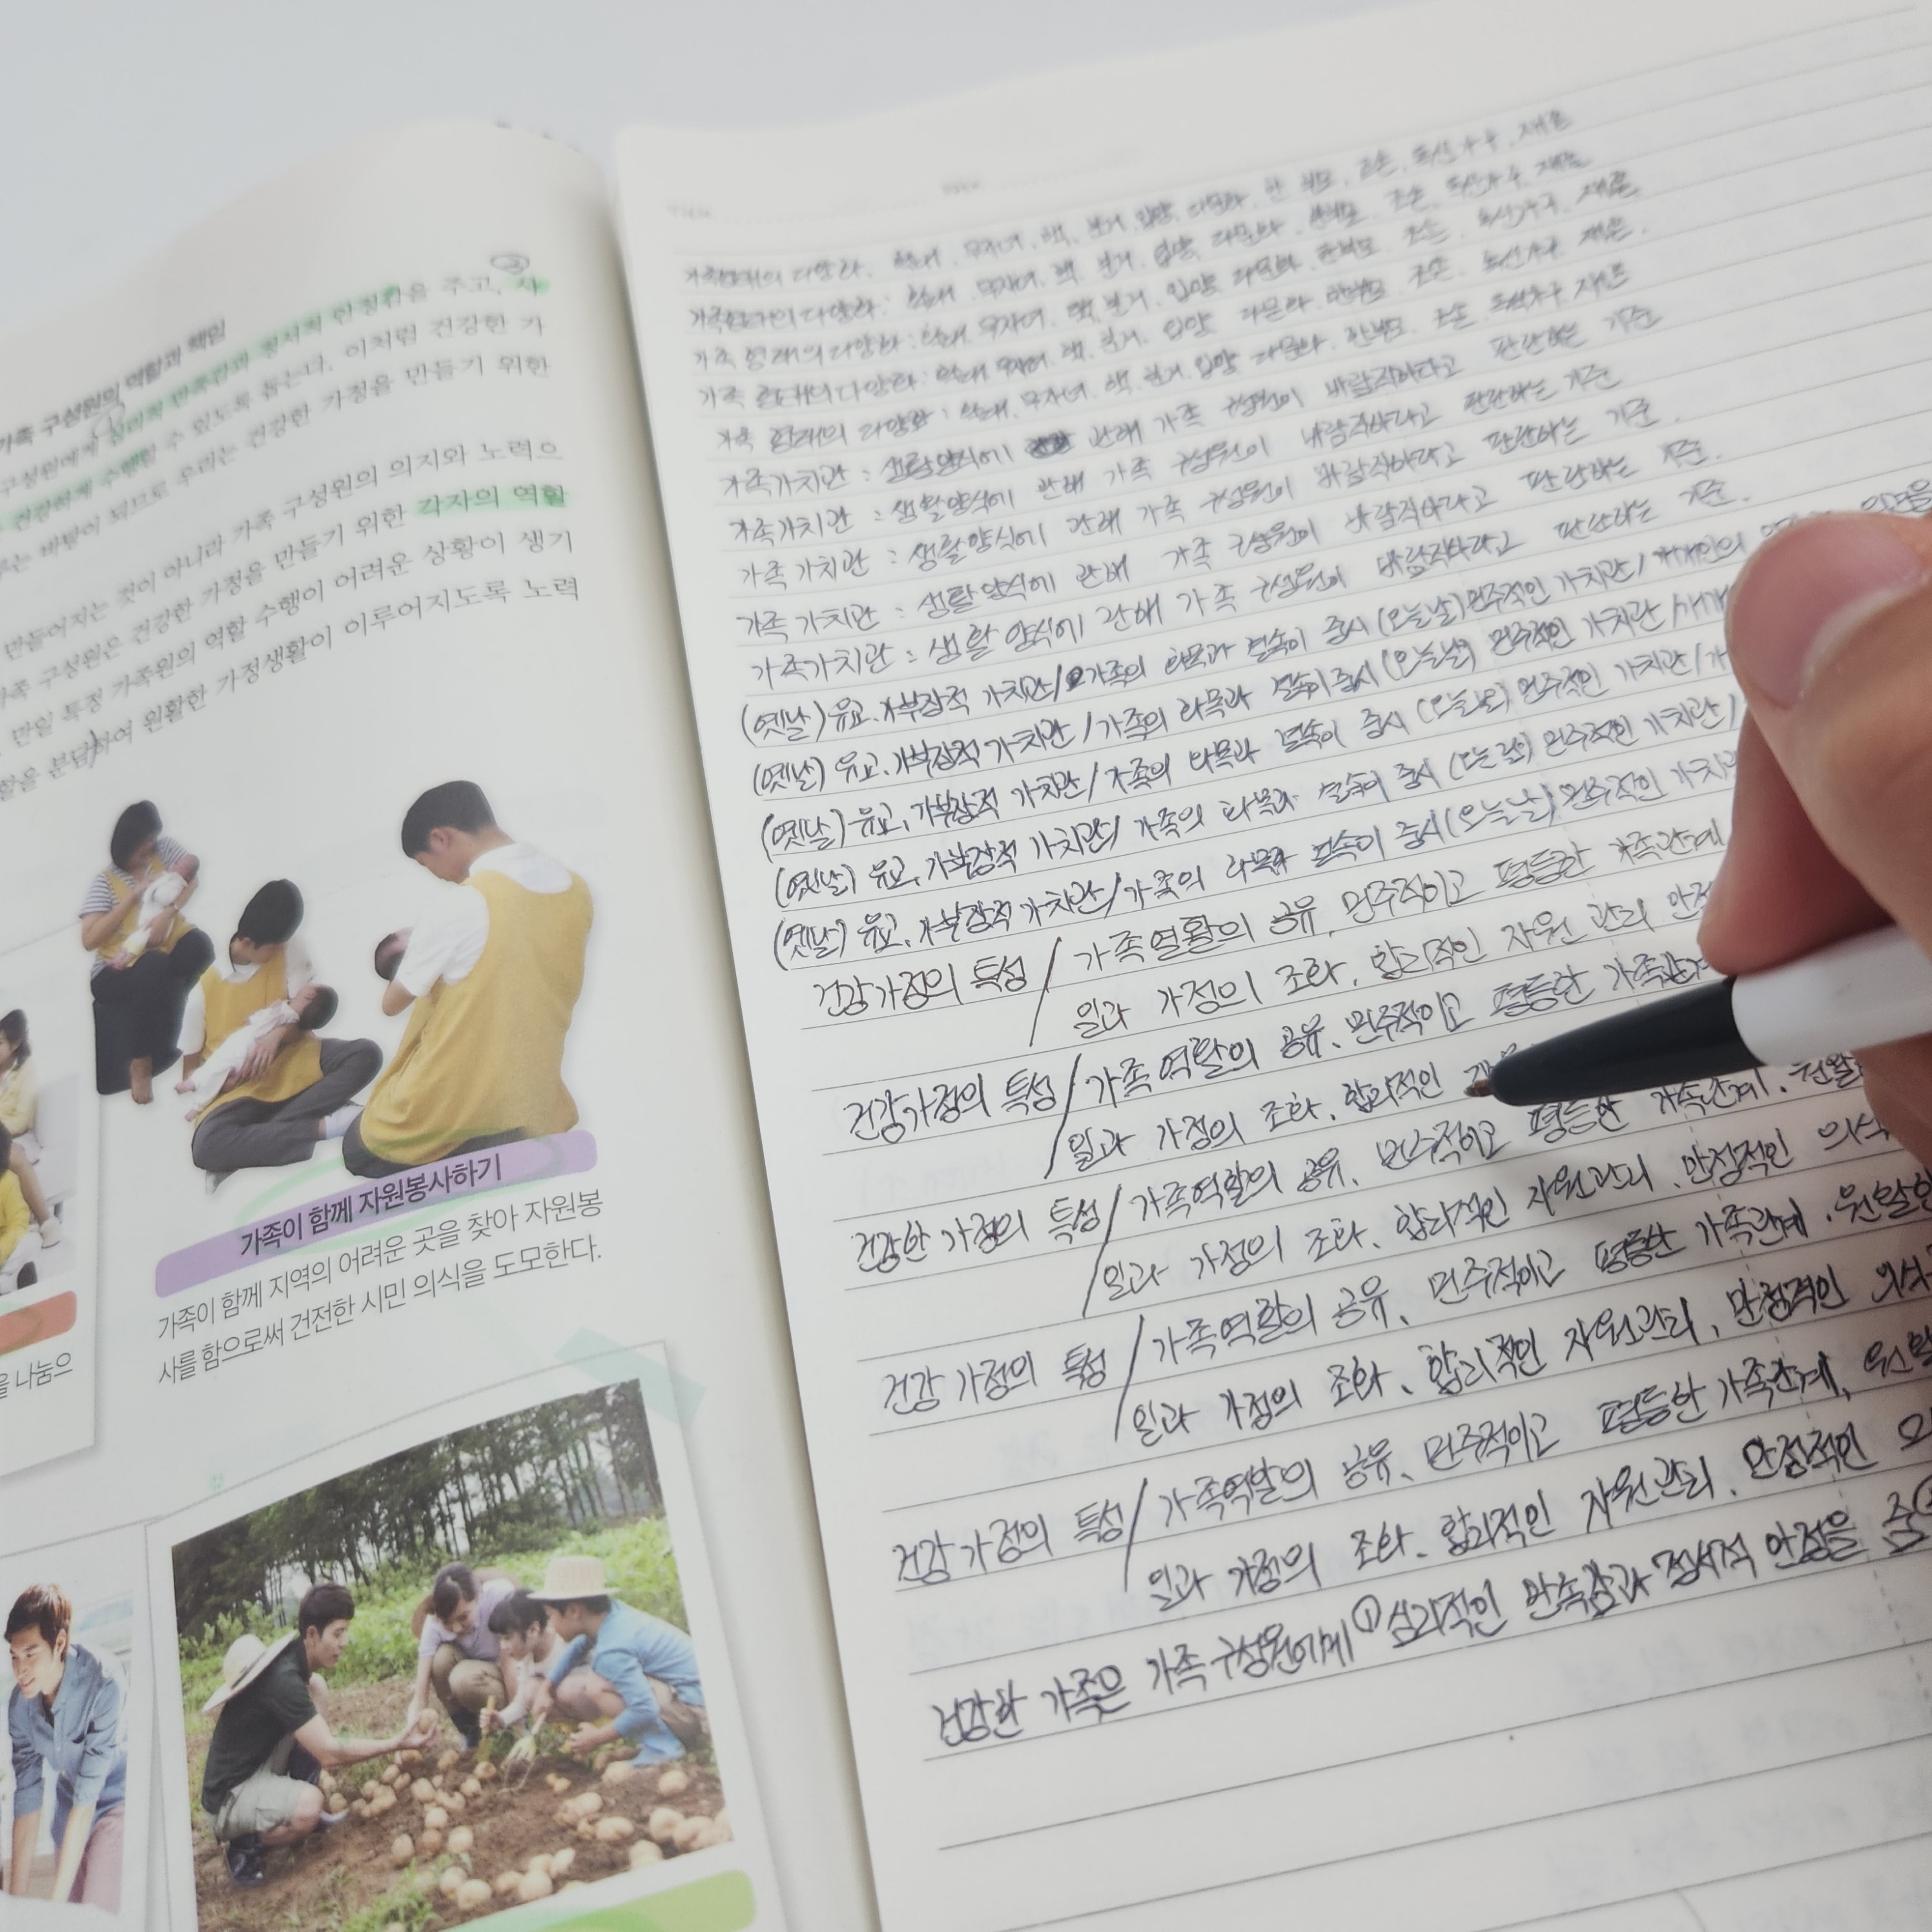 가족 구성원의 역할과 책임
구성원에게 심리적 만족감과 정서적 안정감을 주고, 사
건강하게 수행할 수 있도록 돕는다. 이처럼 건강한 가
바탕이 되므로 우리는 건강한 가정을 만들기 위한
만들어지는 것이 아니라 가족 구성원의 의지와 노력으
가족 구성원은 건강한 가정을 만들기 위한 각자의 역할
만일 특정 가족원의 역할 수행이 어려운 상황이 생기
할을 분담하여 원활한 가정생활이 이루어지도록 노력
가족이 함께 자원봉사하기
가족이 함께 지역의 어려운 곳을 찾아 자원봉
사를 함으로써 건전한 시민 의식을 도모한다.
을 나눔으
가족형태의 다양화. 확대. 무자녀. 핵. 분거. 입양. 다문화. 한 부모. 조손. 독신가구. 재혼
가족형태의 다양화: 확대. 무자녀. 핵. 분거. 입양. 다문화. 한부모. 조손. 독신가구. 재혼
가족 형태의 다양화: 확대. 무자녀. 핵. 분거. 입양. 다문화. 한부모. 조손. 독신가구. 재혼
가족 형태의 다양화: 확대. 무자녀. 핵. 분거. 입양. 다문화. 한부모. 조손. 독신가구. 재혼.
가족 형태의 다양화: 확대. 무자녀. 핵. 분거. 입양. 다문화. 한부모. 조손. 독신가구. 재혼
가족가치관 : 생활양식에 관해 가족 구성원이 바람직하다고 판단하는 기준
가족가치관 : 생활양식에 관해 가족 구성원이 바람직하다고 판단하는 기준
가족 가치관 : 생활양식에 관해 가족 구성원이 바람직하다고 판단하는 기준.
가족 가치관 : 생활양식에 관해 가족 구성원이 바람직하다고 판단하는 기준.
가족가치관 : 생활 양식에 관해 가족 구성원이 바람직하다고 판단하는 기준.
(옛날) 유교. 가부장적 가치관/ 가족의 화목과 결속이 중시 (오늘날) 민주적인 가치관/ 개개인의
(옛날) 유교. 가부장적 가치관 / 가족의 화목과 결속이 중시 (오늘날) 민주적인 가치관 /개개
(옛날) 유교, 가부장적 가치관/ 가족의 화목과 결속이 중시 (오늘날) 민주적인 가치관/
(옛날) 유교, 가부장적 가치관/ 가족의 화목과 결속이 중시 (오늘날) 민주적인 가치관/
(옛날) 유교, 가부장적 가치관/ 가족의 화목과 결속이 중시 (오늘날) 민주적인 가치관
건강가정의 특성 / 가족역할의 공유, 민주적이고 평등한 가족관계
일과 가정의 조화, 합리적인 자원 관리 안정
건강가정의 특성 / 가족 역할의 공유. 민주적이고 평등한 가족관계
일과 가정의 조화. 합리적인
건강한 가정의 특성 / 가족역할의 공유. 민주적이고 평등한 가족관계. 원활
일과 가정의 조화. 합리적인 자원관리. 안정적인 의식
건강 가정의 특성 / 가족역할의 공유, 민주적이고 평등한 가족관계. 원활한
일과 가정의 조화. 합리적인 자원관리, 안정적인 의식
건강 가정의 특성 / 가족역할의 공유. 민주적이고 평등한 가족관계, 원활
일과 가정의 조화. 합리적인 자원관리. 안정적인
건강한 가족은 가족 구성원에게 ①심리적인 만족감과 정서적 안정을 줌